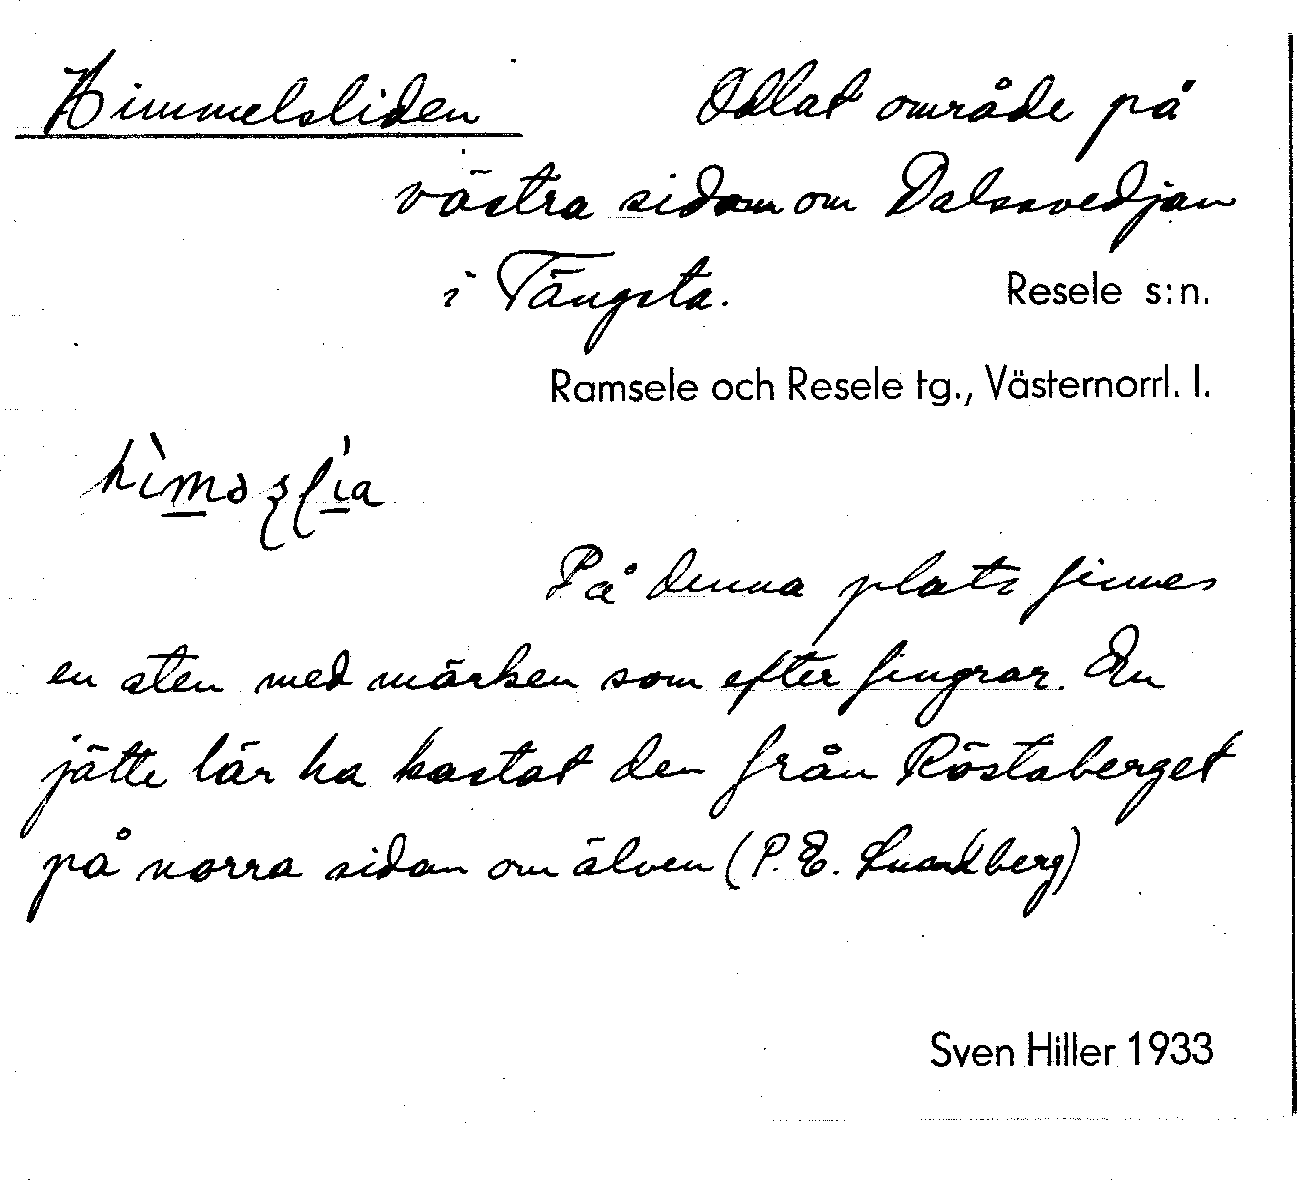 Himmelsliden Odlat område på
västra sidan om Dalssvedjan
i Tängsta. Resele s:n.
Ramsele och Resele tg., Västernorrl. l.
På denna plats finnes
en sten med märken som efter fingrar. En
jätte lär ha kastat den från Röstaberget
på norra sidan om älven (P. E. Lundberg)
Sven Hiller 1933